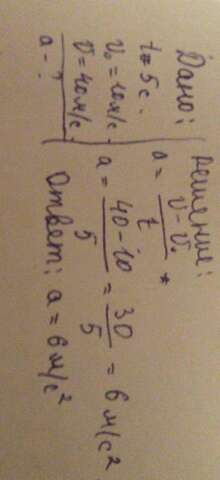 Дано:
t = 5 с.
v₀ = 10 м/с
v = 40 м/с
a - ?
Решение:
a = v - v₀ / t *
a = 40 - 10 / 5 = 30 / 5 = 6 м/с²
Ответ: a = 6 м/с²